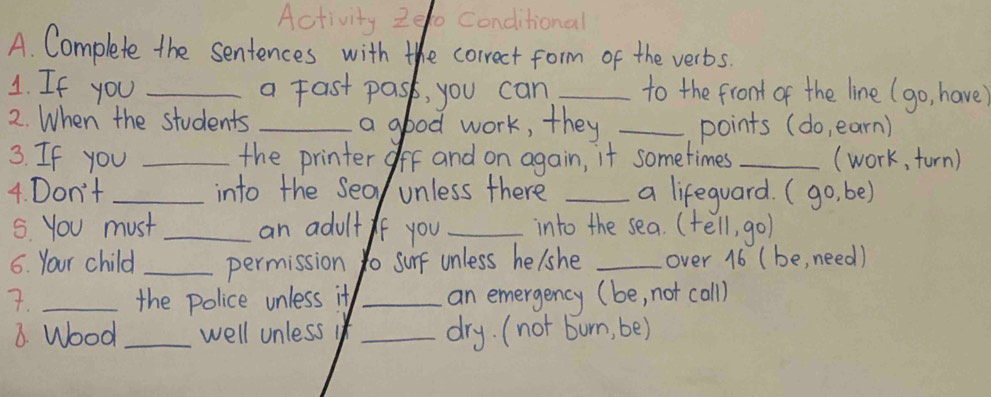 Activity Zero Conditional
A. Complete the sentences with the correct form of the verbs.
1. If you ______ a Fast pass, you can _____ to the front of the line (go, have)
2. When the students ______ a good work, they ____ points (do, earn)
3. If you _____ the printer off and on again, it sometimes _____ (work, turn)
4. Don't ______ into the sea unless there ____ a lifeguard. (go, be)
5. You must _____ an adult if you _____ into the sea. (tell, go)
6. Your child ____ permission to surf unless he/she ____ over 16 (be, need)
7. _____ the police unless it _____ an emergency (be, not call)
8 Wood ____ well unless it _____ dry. (not burn, be)